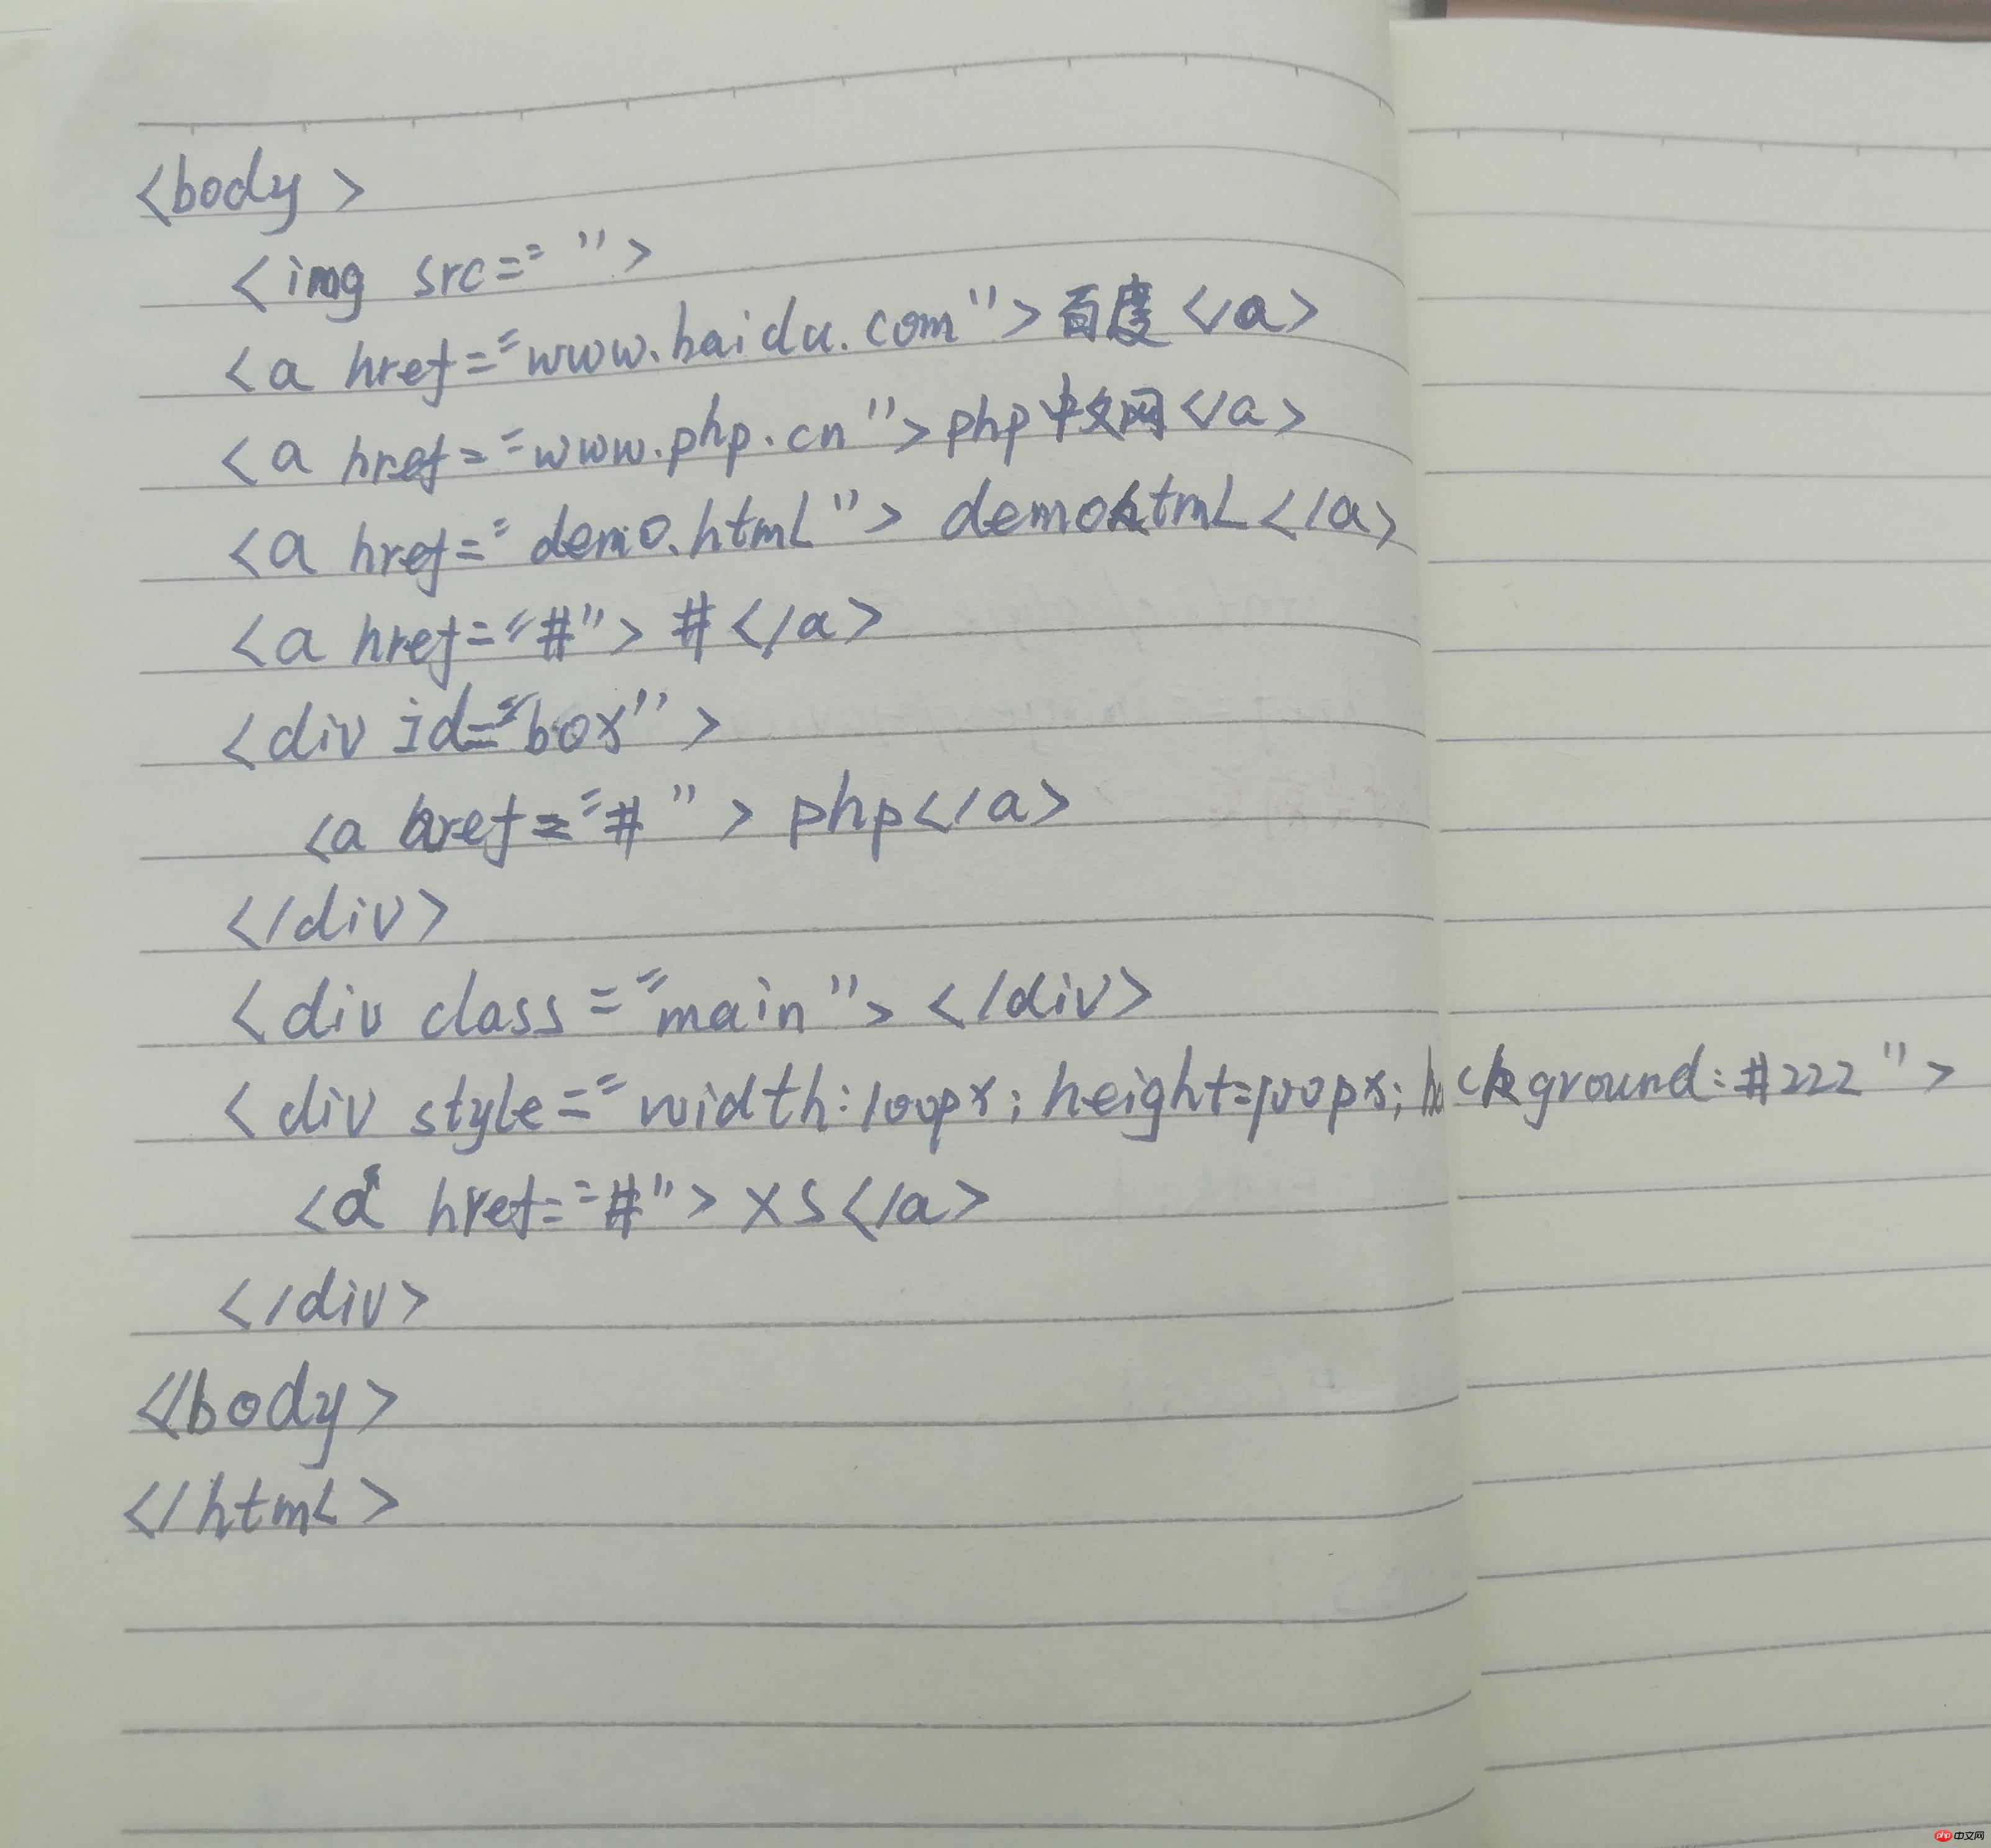 <body>
<img src="">
<a href="www.baidu.com">百度</a>
<a href="www.php.cn">php中文网</a>
<a href="demo.html">demohtml</a>
<a href="#">#</a>
<div id="box">
<a href="#">php</a>
</div>
<div class="main"></div>
<div style="width:100px; height=100px; background:#222">
<a href="#">xs</a>
</div>
</body>
</html>
php 中文网